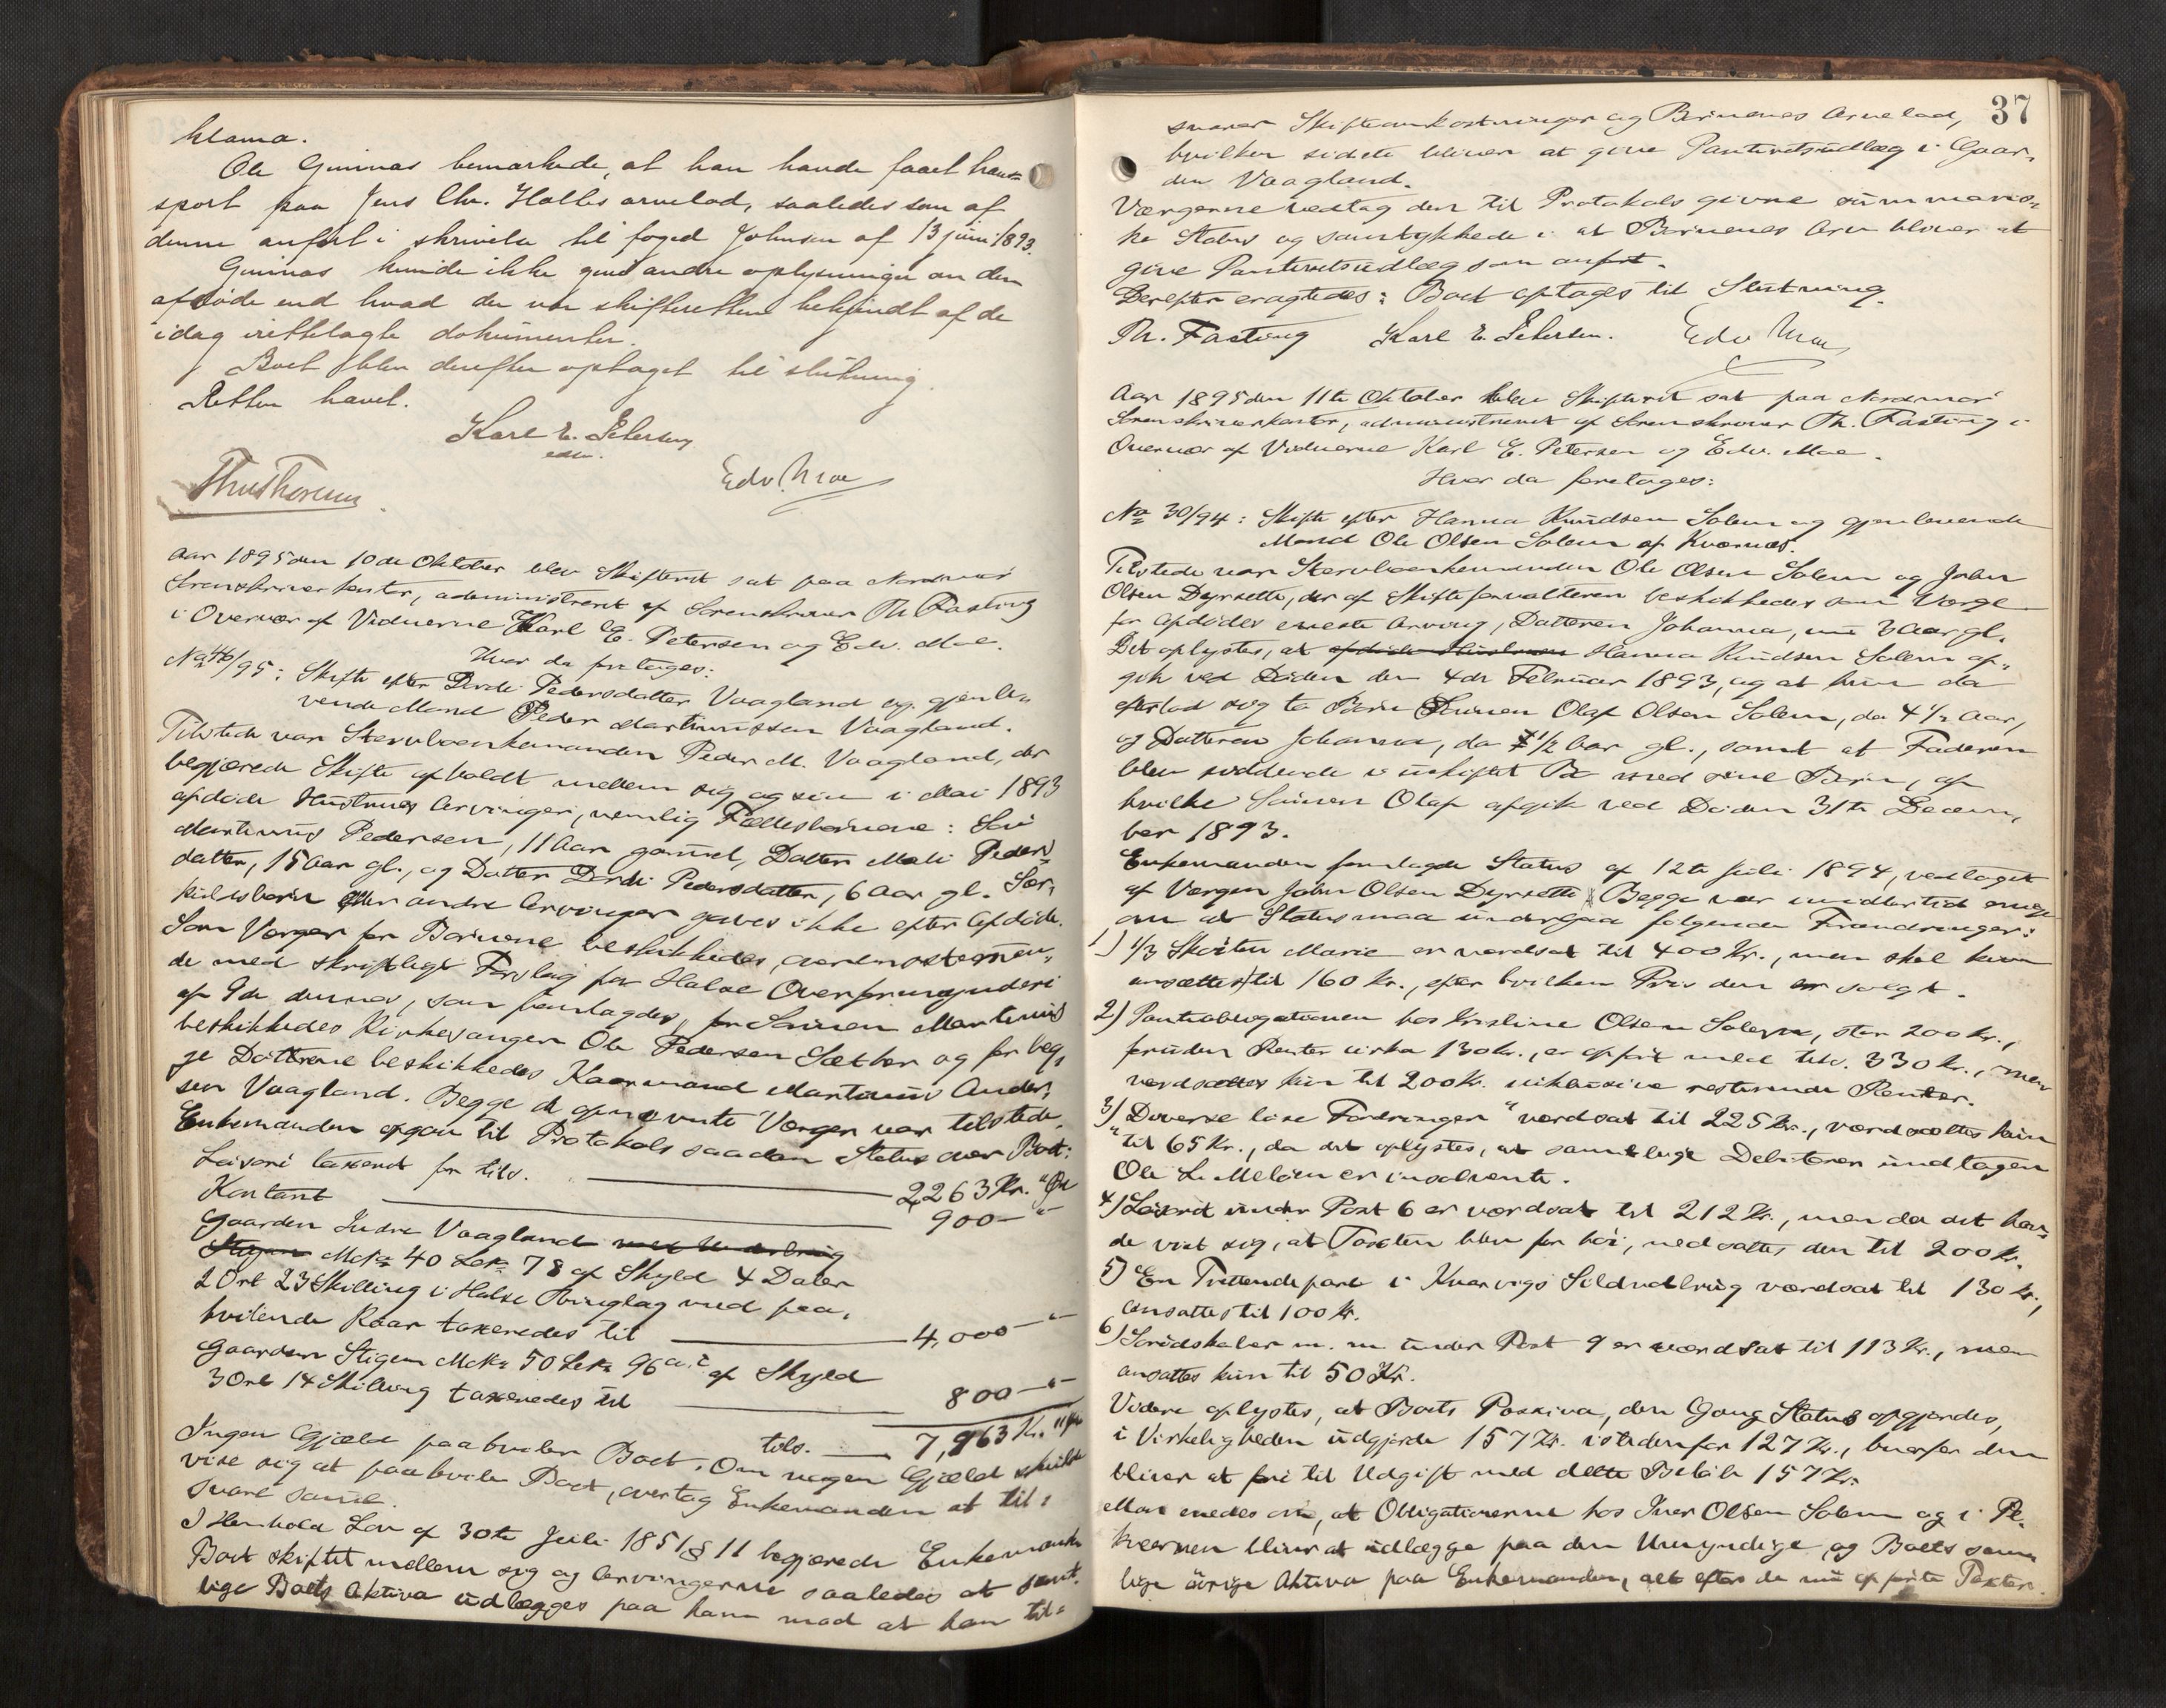 klama.
Ole Guinnas bemærkede, at han havde faaet tran-
sport paa Jens Chr. Halles arvelod, saaledes som af
denne anført i skrivelse til foged Johnsen af 13 juni 1893.
Guinnas kunde ikke give andre oplysninger om den
afdøde end hvad der var skifteretten bekjendt af de
idag irettelagte dokumenter.
Boet blev derefter optaget til slutning.
Retten hævet.
Karl E. Petersen
Edv. Moe
Aar 1895 den 10de Oktober blev Skifteret sat paa Nordmør
Sorenskriverkontor, administreret af Sorenskriver Th. Fasting
i Overvær af Vidnerne Karl E. Petersen og Edv. Moe.
Hvor da foretages:
No 46/95: Skifte efter Dordi Pedersdatter Vaagland og gjenle-
vende Mand Peder Martinussen Vaagland.
Tilstede var Stervboenkemanden Peder M. Vaagland, der
begjærede Skifte afholdt mellem sig og sin i Mai 1893
afdøde Hustrues Arvinger, nemlig Fællesbørnene: Søn
Martinus Pedersen, 11 Aar gammel, Datter Mali Peders-
datter, 15 Aar gl., og Datter Dordi Pedersdatter, 6 Aar gl. Sær-
kuldsbørn eller andre Arvinger gaves ikke efter Afdøde.
Som Værger for Børnene beskikkedes, overensstemmen-
de med skriftligt Forslag fra Halse Overformynderi
af 9de dennes, som fremlagdes, for Sønnen Martinus
beskikkedes Kirkesanger Ole Pedersen Sæther og for beg-
ge Døttrene beskikkedes Kaarmand Martinus Ander-
sen Vaagland. Begge de opnævnte Værger var tilstede.
Enkemanden opgav til Protokols saadan Status over Boet:
Løsøre taxeret for tils. 2263 Kr. " Øre
Kontant 900 - "
Gaarden Indre Vaagland med Underbrug
Stigen Mcka 40 Lck 78 af Skyld 4 Daler
2 Ort 23 Skilling i Halse Thinglag med paa-
hvilende Kaar taxeredes til 4,000 - "
Gaarden Stigen Mcka 50 Lck 96 a, c af Skyld
3 Ort 14 Skilling taxeredes til 800 - "
tils. 7,963 Kr. " Øre
Ingen Gjæld paahviler Boet. Om nogen Gjæld skulde
vise sig at paahvile Boet, overtog Enkemanden at til-
svare samme.
I Henhold Lov af 30te Juli 1851 § 11 begjærede Enkemanden
Boet skiftet mellem sig og Arvingerne saaledes at samt-
lige Boets Aktiva udlægges paa ham mod at han til-
37
svarer Skifteomkostninger og Børnenes Arvelod,
hvilken sidste bliver at give Panteretsudlæg i Gaar-
den Vaagland.
Værgerne vedtog den til Protokols givne summaris-
ke Status og samtykkede i at Børnenes Arv bliver at
give Panteretsudlæg som anført.
Derefter eragtedes: Boet optages til Slutning.
Th. Fasting Karl E. Petersen. Edv Moe
Aar 1895 den 11te Oktober blev Skifteret sat paa Nordmør
Sorenskriverkontor, administreret af Sorenskriver Th. Fasting i
Overvær af Vidnerne Karl E. Petersen og Edv. Moe.
Hvor da foretages:
No 30/94: Skifte efter Hanna Knudsen Solem og gjenlevende
Mand Ole Olsen Solem af Kværnæs.
Tilstede var Stervboenkemanden Ole Olsen Solem og John
Olsen Dyrsette, der af Skifteforvalteren beskikkedes som Værge
for Afdødes eneste Arving, Datteren Johanna, nu 3 Aar gl.
Det oplystes, at afdøde Hustruen Hanna Knudsen Solem af-
gik ved Døden den 4de Februar 1893, og at hun da
efterlod sig to Børn Sønnen Olaf Olsen Solem, da 4 1/2 Aar,
og Datteren Johanna, da 1/2 Aar gl., samt at Faderen
blev siddende i uskiftet Bo med sine Børn, af
hvilke Sønnen Olaf afgik ved Døden 31te Decem-
ber 1893.
Enkemanden fremlagde Status af 12te Juli 1894, vedtaget
af Værgen John Olsen Dyrsette. Begge var imidlertid enige
om at Status maa undergaa følgende Forandringer:
1) 1/3 Skøiten Marie er værdsat til 400 Kr., men skal kun
ansættes til 160 Kr., efter hvilken Pris den er solgt.
2) Pantobligationen hos Kristine Olsen Solem, stor 200 Kr.,
foruden Renter cirka 130 Kr., er opført med tils. 330 Kr., men
værdsættes kun til 200 Kr. inklusive resterende Renter.
3) "Diverse løse Fordringer" værdsat til 225 Kr., værdsættes kun
til 65 Kr., da det oplystes, at samtlige Debitorer undtagen
Ole L. Meløen er insolvente.
4) Løsøret under Post 6 er værdsat til 212 Kr., men da det hav-
de vist sig, at Taxten blev for høi, nedsættes den til 200 Kr.
5) En Trettendepart i Kvarvigs Sildnotbrug værdsat til 130 Kr.,
ansættes til 100 Kr.
6) Smedskaber m. m under Post 9 er værdsat til 113 Kr., men
ansættes kun til 50 Kr.
Videre oplystes, at Boets Passiva, den Gang Status opgjordes,
i Virkeligheden udgjorde 157 Kr. istedenfor 127 Kr., hvorfor den
bliver at føre til Udgift med dette Beløb 157 Kr.
Man enedes om, at Obligationerne hos Iver Olsen Solem og i Pe.
kvernen bliver at udlægge paa den Umyndige, og Boets sam-
lige øvrige Aktiva paa Enkemanden, alt efter de nu opførte Taxter.